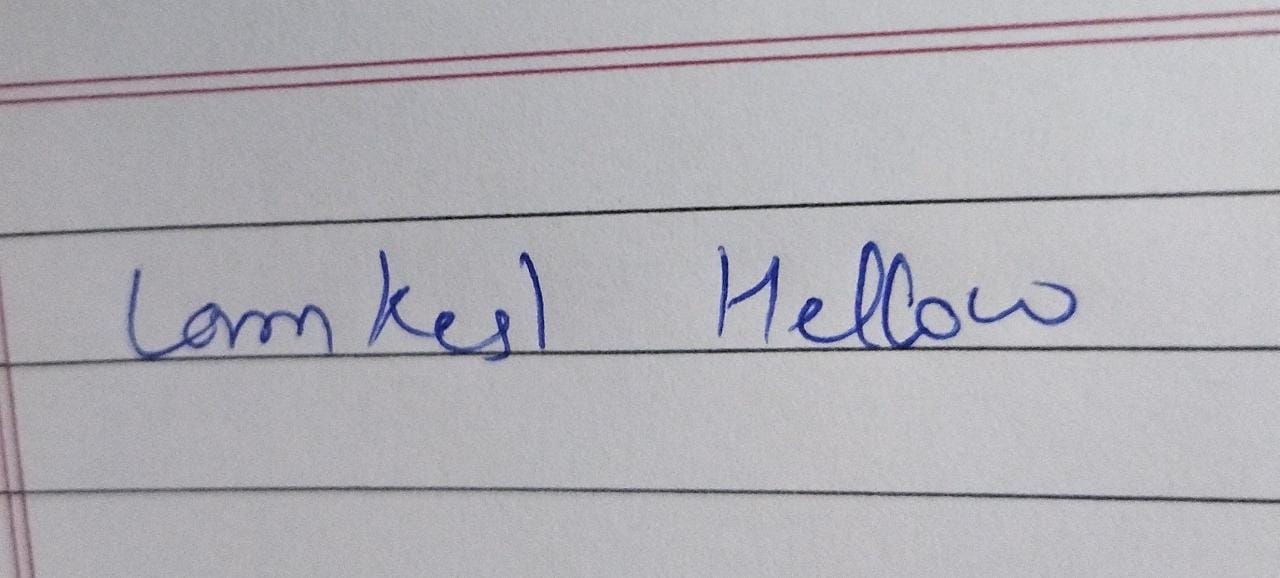 Lamkesl Hellow